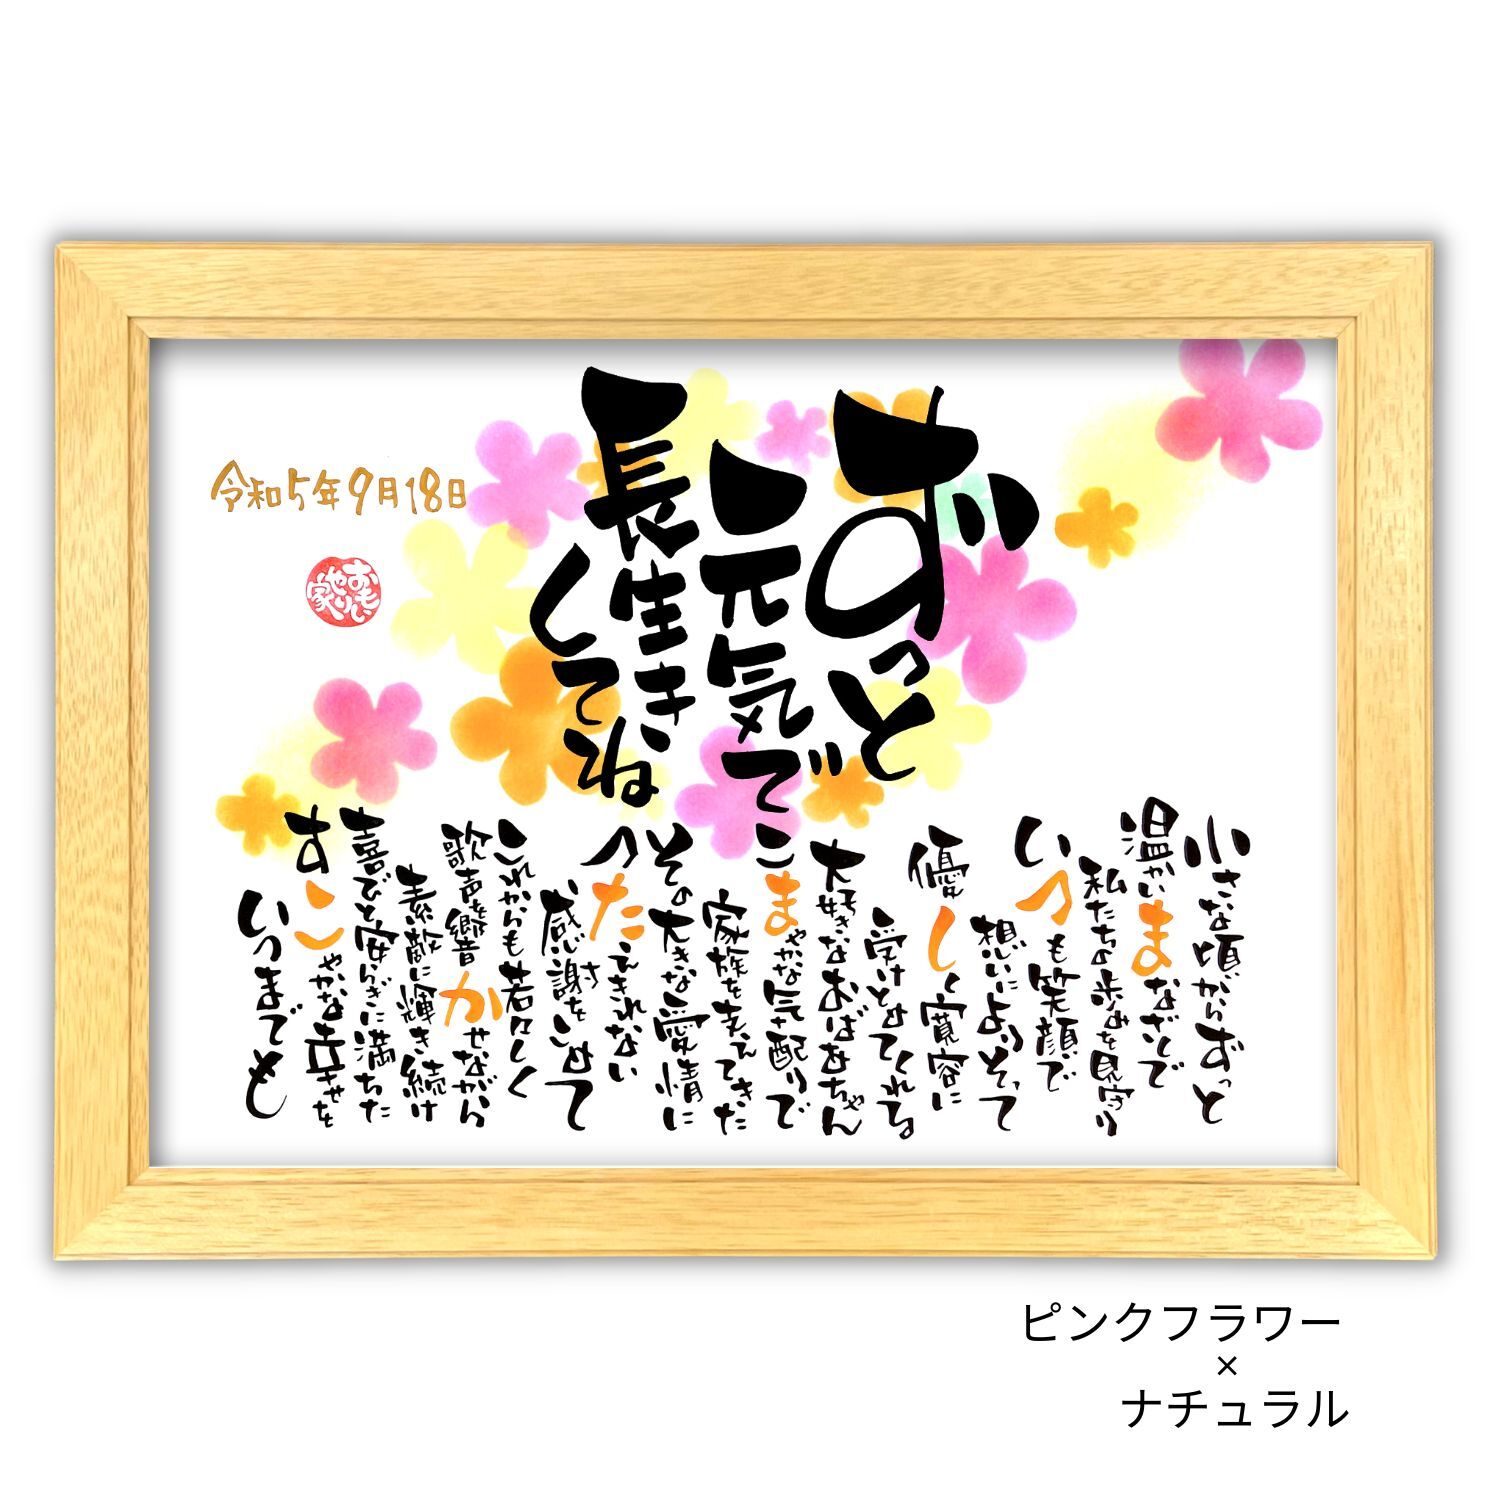 ずっと
元気で
長生き
してね
令和5年9月18日
おもいやり家
小さな頃からずっと
温かいまなざしで
私たちの歩みを見守り
いつも笑顔で
想いによりそって
優しく寛容に
受けとめてくれる
大好きなおばあちゃん
こまやかな気配りで
家族を支えてきた
その大きな愛情に
つたえきれない
感謝をこめて
これからも若々しく
歌声を響かせながら
素敵に輝き続け
喜びと安らぎに満ちた
すこやかな幸せを
いつまでも
ピンクフラワー
×
ナチュラル